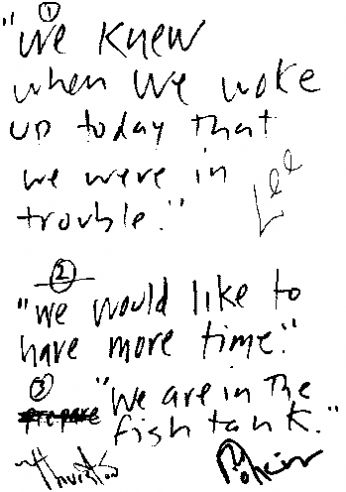 ①
"We knew
when we woke
up today that
we were in
trouble." Lee
②
"We would like to
have more time."
③ "We are in the
prepare fish tank."
Thurston